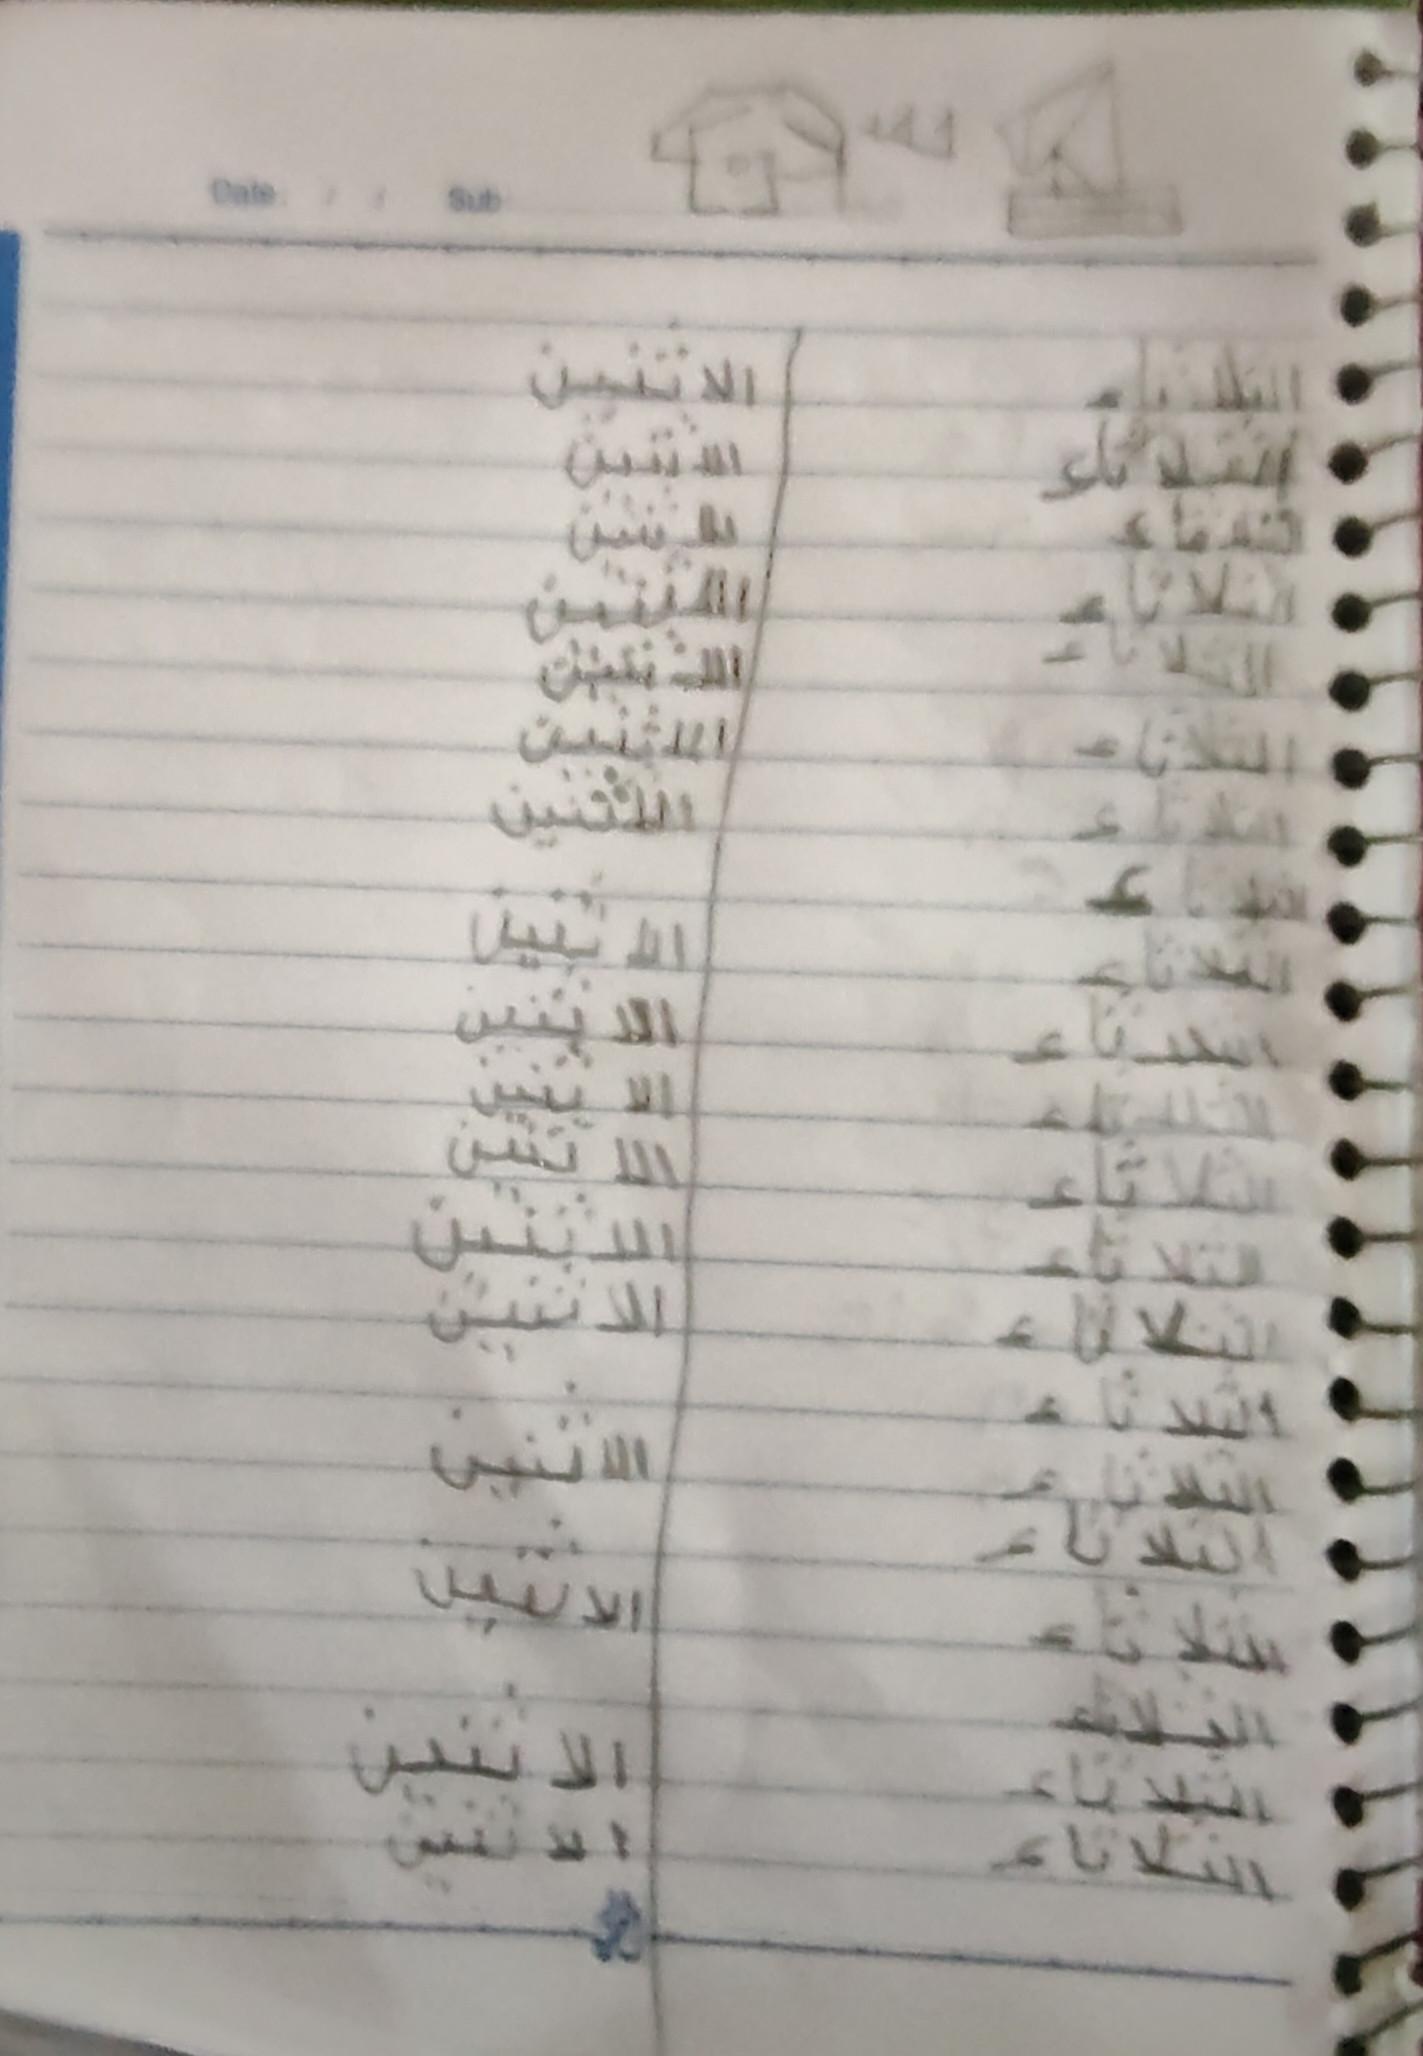 Date: / / Sub
الثلاثاء الاثنين
الثلاثاء الاثنين
الاثنين
الثلاثاء الاثنين
الثلاثاء الاثنين
الثلاثاء الاثنين
الثلاثاء الاثنين
الاثنين
الثلاثاء الاثنين
الثلاثاء الاثنين
الثلاثاء الاثنين
الثلاثاء الاثنين
الثلاثاء الاثنين
الثلاثاء
الثلاثاء الاثنين
الثلاثاء
الثلاثاء الاثنين
الثلاثاء
الثلاثاء الاثنين
الثلاثاء الاثنين